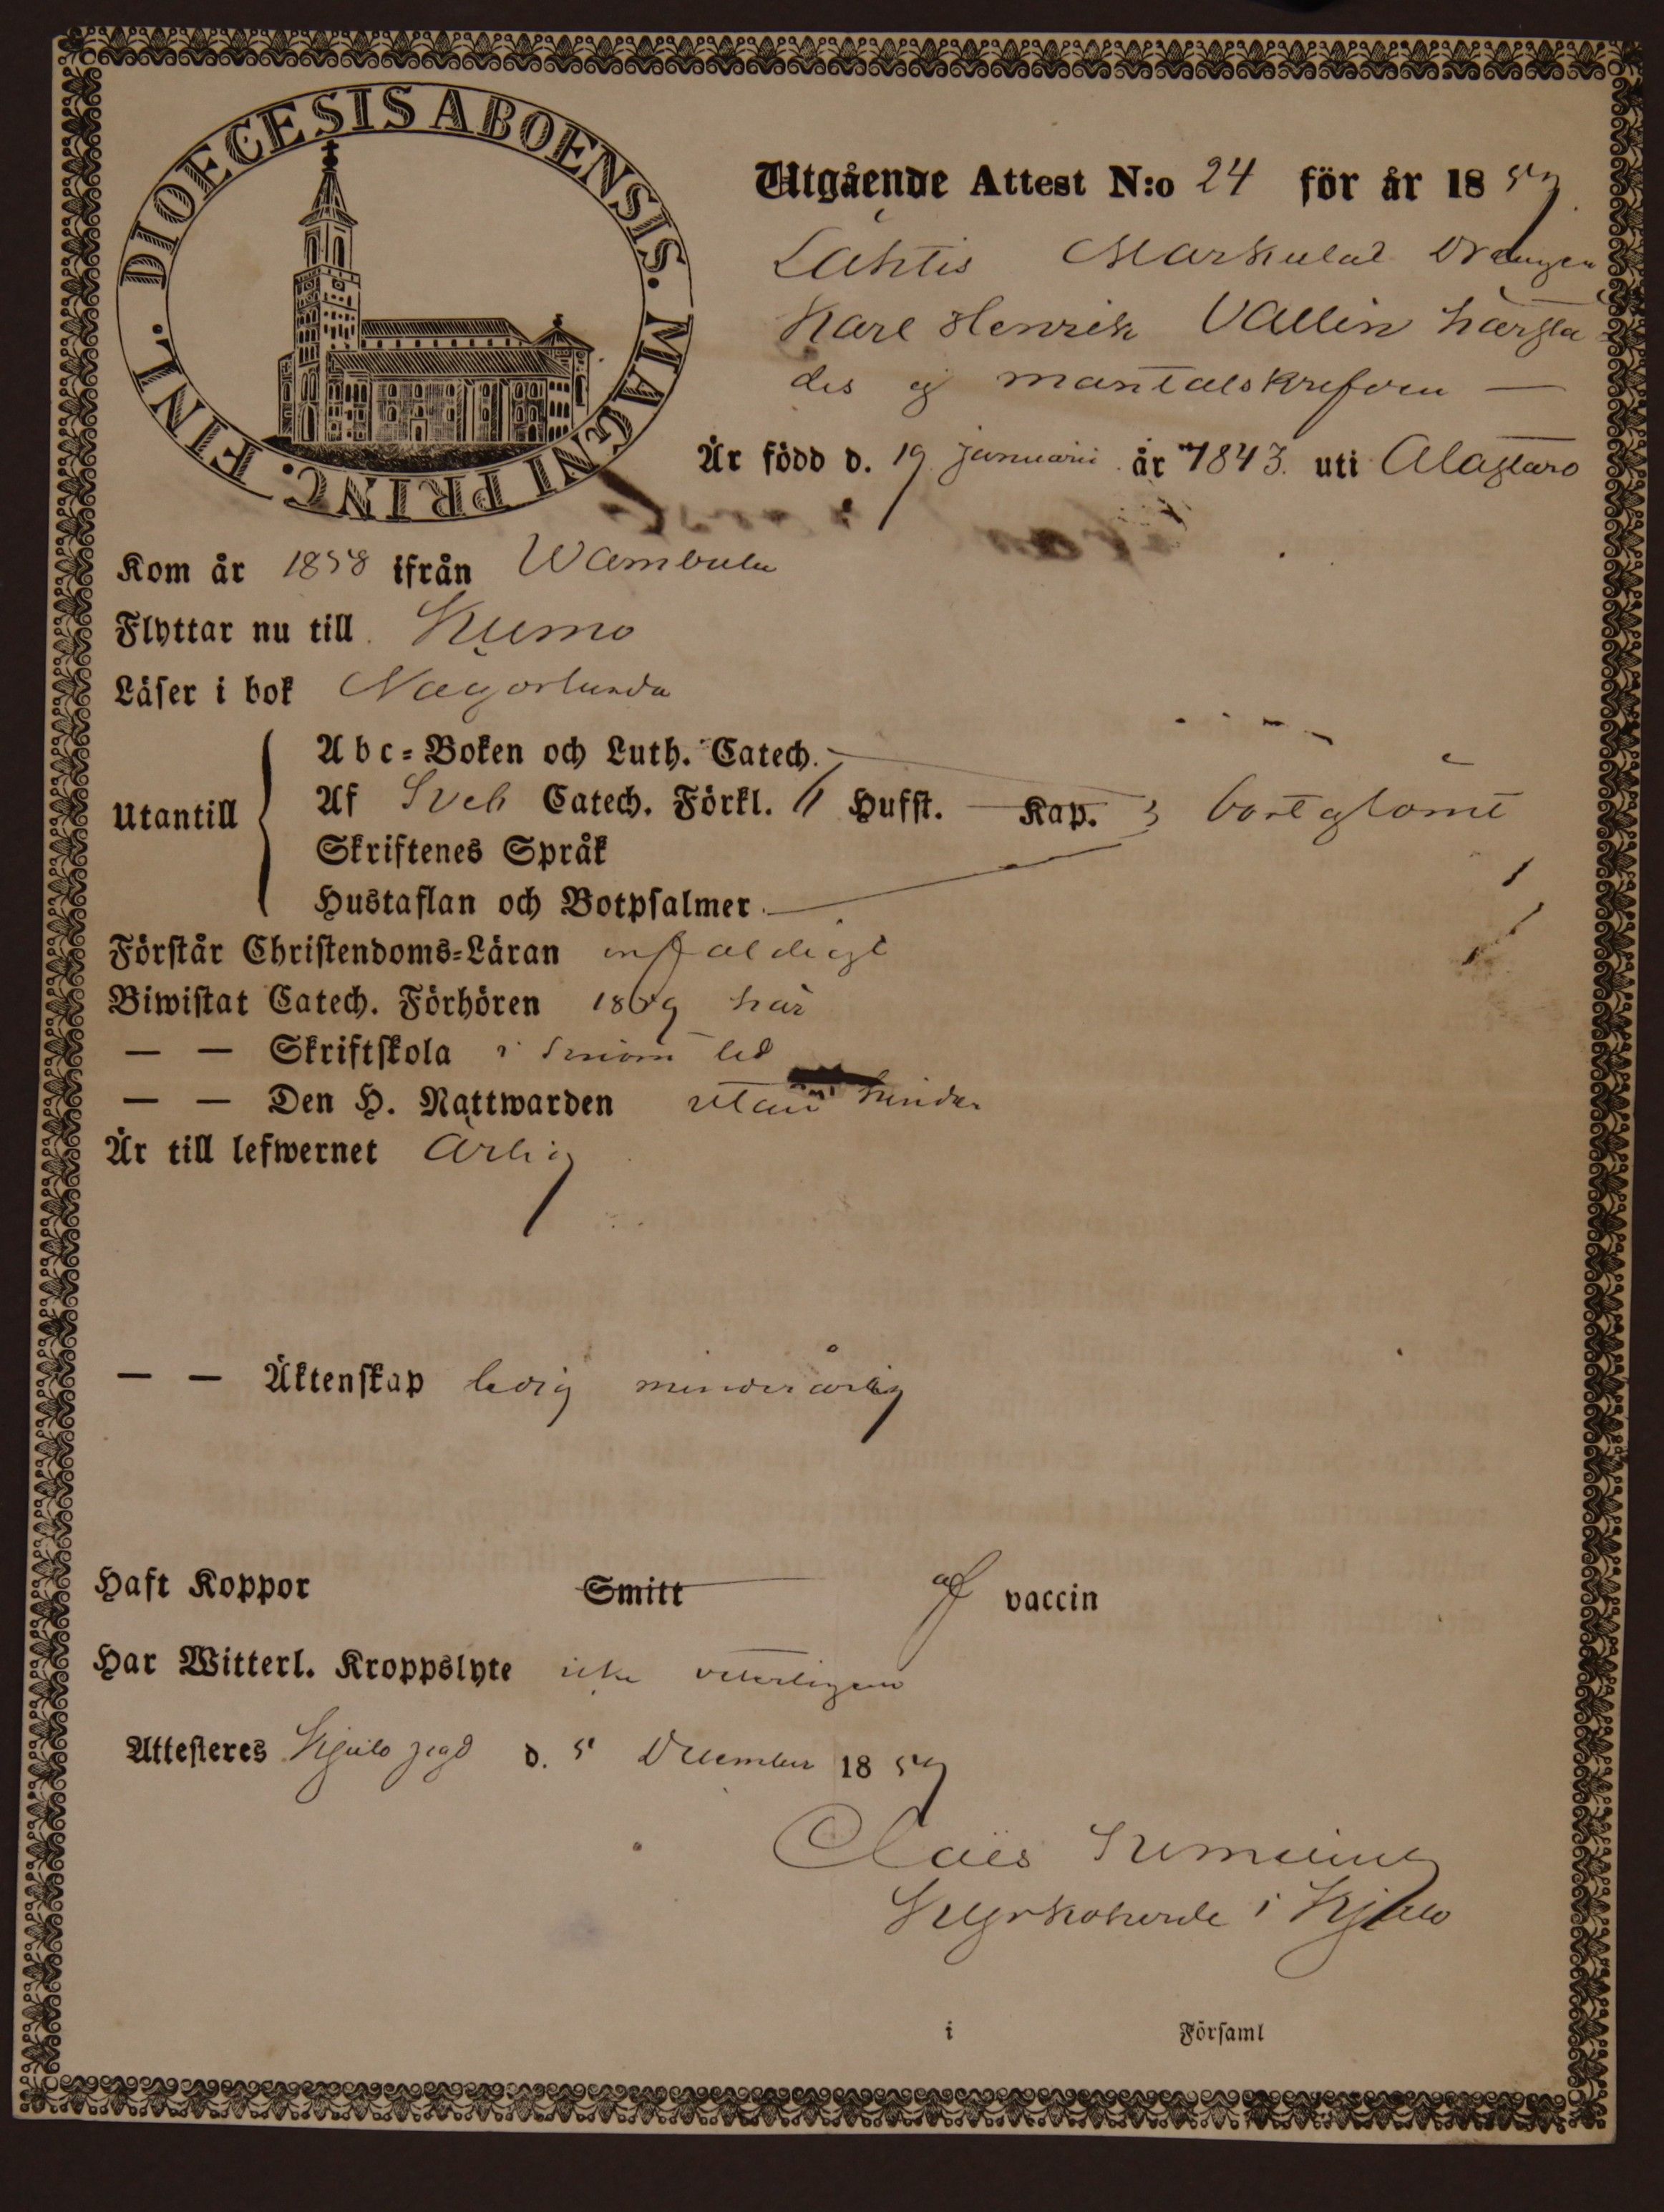 DIOECESIS ABOENSIS. MAGNI PRINC. FINL.
Utgående Attest N:o 24 för år 1859
Lähtis Markulas Drängen
Karl Henrik Vallin härsta-
des ej mantalskrefven —
Är född d. 19 Januarii år 1843. uti Alastaro
Kom år 1858 ifrån Wambula
Flyttar nu till Kumo
Läser i bok Någorlunda
Utantill
Abc-Boken och Luth. Catech.
Af Sveb Catech. Förkl. Hufst. Kap. 3 bortglömt
Skriftenes Språk
Hustaflan och Botpsalmer
Förstår Christendoms-Läran enfaldigt
Biwistat Catech. Förhören 1859 här
— — Skriftskola i
— — Den H. Nattwarden utan hinder
Är till lefwernet Ärlig
— — Äktenskap ledig minderårig
Haft Koppor Smitt af vaccin
Har Witterl. Kroppslyte icke vitterligen
Attesteres Kjulo pgd d. 5 December 1859
Claës
Kyrkoherde i Kjulo
i Församl